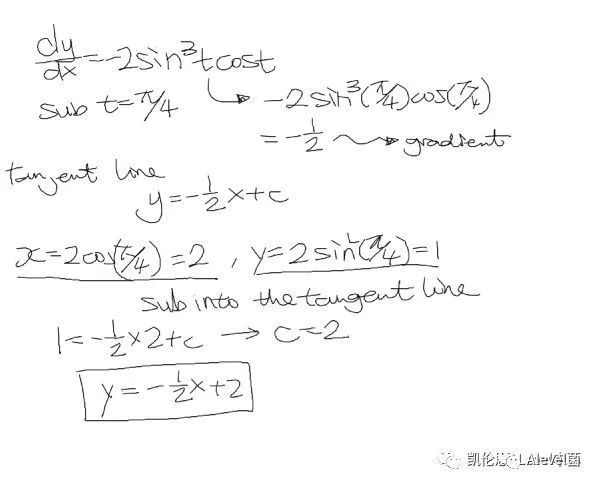 dy/dx = -2sin³tcost
sub t = π/4 → -2sin³(π/4)cos(π/4)
= -1/2 → gradient
tangent line
y = -1/2x + c
x = 2cos(π/4) = 2 , y = 2sin²(π/4) = 1
sub into the tangent line
1 = -1/2 × 2 + c → c = 2
y = -1/2x + 2
凯伦